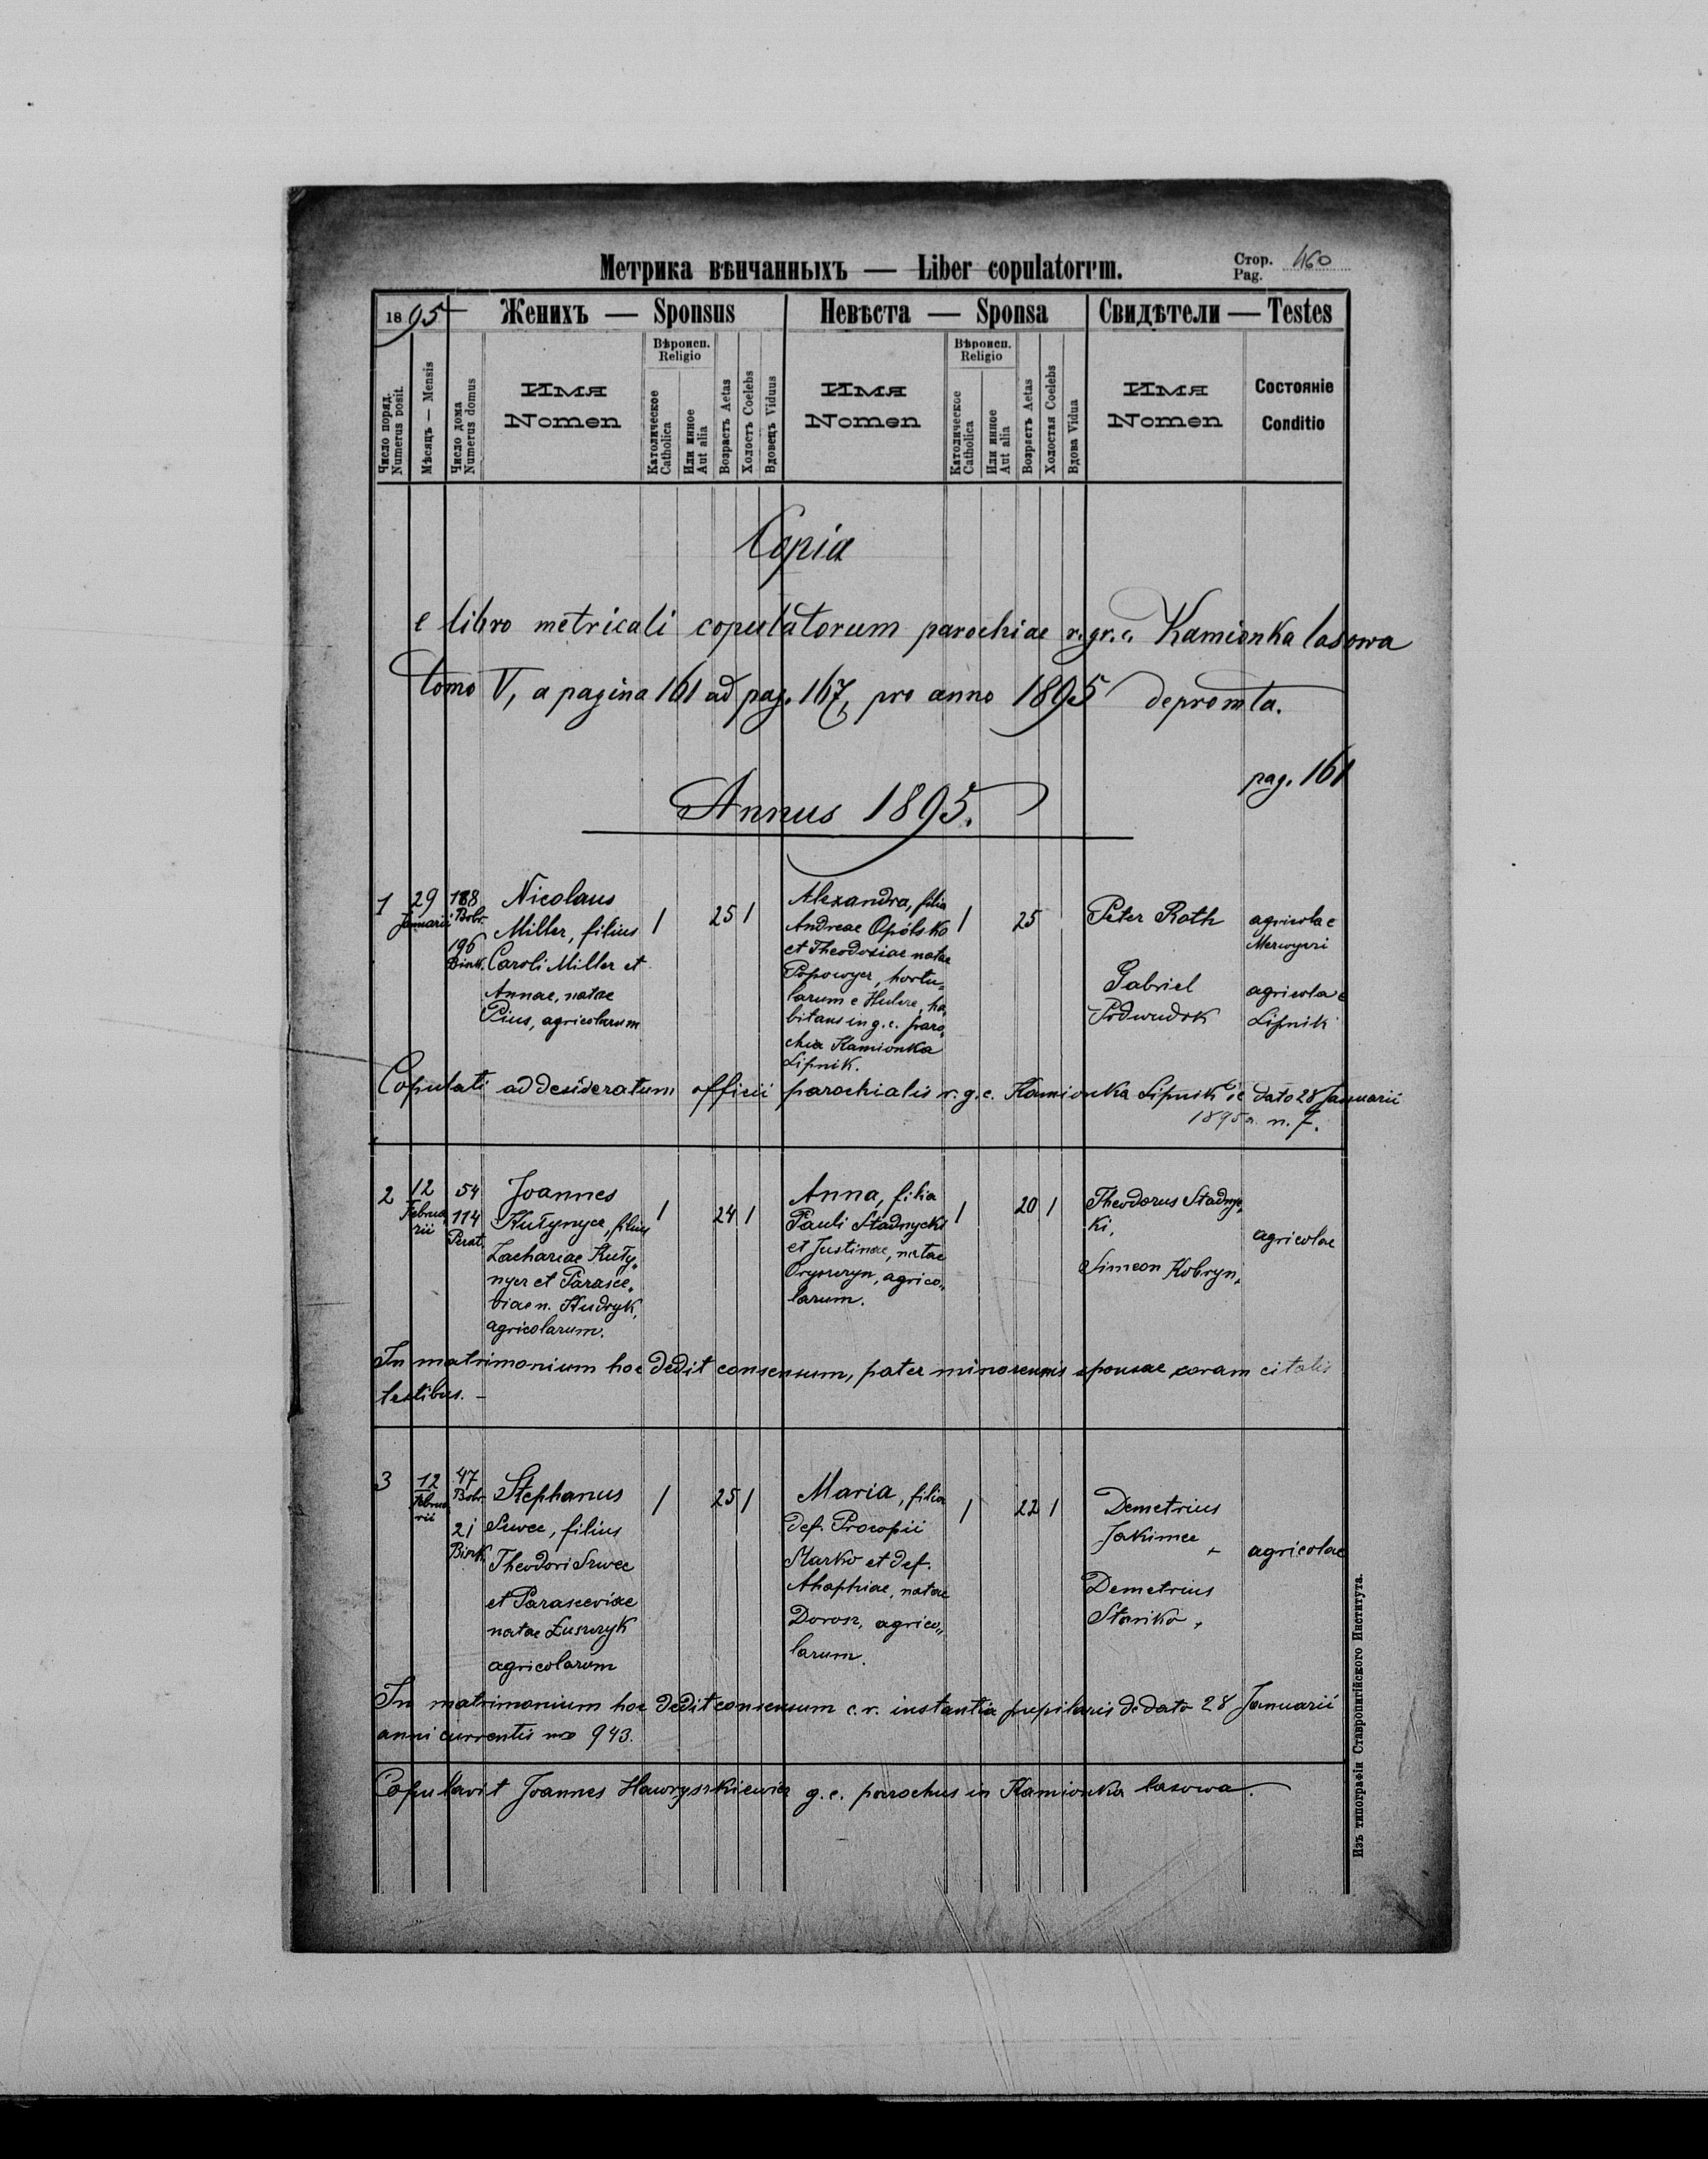 Метрика вѣнчанныхъ — Liber copulatorum.
Стор. Pag. 460
1895
Женихъ — Sponsus
Невѣста — Sponsa
Свидѣтели — Testes
Число поряд. Numerus posit.
Мѣсяць — Mensis
Число дома Numerus domus
Имя Nomen
Вѣроисп. Religio
Католическое Catholica
Или инное Aut alia
Возрастъ Aetas
Холостъ Coelebs
Вдовецъ Viduus
Имя Nomen
Вѣроисп. Religio
Католическое Catholica
Или инное Aut alia
Возрастъ Aetas
Холостая Coelebs
Вдова Vidua
Имя Nomen
Состояніе Conditio
Copia
e libro metricali copulatorum parochiae r.gr.c. Kamionka lasowa
tomo V, a pagina 161 ad pag. 167, pro anno 1895 depromta.
pag. 161
Annus 1895.
1
29 Januarii
188 Bobr.
196
Nicolaus
Miller, filius
Caroli Miller et
Annae, natae
Pius, agricolarum
1 25 1
Alexandra, filia
Andreae Opólsko
et Theodosiae natae
Popowycz, hortu„
larum e Hulcze, ha„
bitans in g.c. paro„
chia Kamionka
Lipnik.
1 25
Peter Roth
agricolae
Gabriel
Podwudok
agricolae
Lipnik
Copulati ad desideratum officii parochialis r.g.c. Kamionka Lipnik de dato 28 Januarii
1895 a. n. 7.
2
12 Februa„
rii
54
114
Perat.
Joannes
Kułynycz, filius
Zachariae Kuły„
nycz et Parasce„
viae n. Kudryk,
agricolarum.
1 24 1
Anna, filia
Pauli Stadnycki
et Justinae, natae
Oryszczyn, agrico„
larum.
1 20 1
Theodorus Stadnyc„
ki,
Simeon Kobryn,
agricolae
In matrimonium hoc dedit consensum, pater minorennis sponsae coram citatis
testibus. —
3
12
Februa
rii
47
Bobr.
21
Stephanus
Szwec, filius
Theodori Szwec
et Parasceviae
natae Łuszczyk
agricolarum
1 25 1
Maria, filia
def. Procopii
Starko et def.
Ahaphiae, natae
Dorosz, agrico„
larum.
1 22 1
Demetrius
Jakimec,
Demetrius
Stariko,
agricolae
In matrimonium hoc dedit consensum c.r. instantia pupilaris de dato 28 Januarii
anni currentis nro 943.
Copulavit Joannes Hawryszkiewicz g.c. parochus in Kamionka lasowa.
Изъ типографіи Ставропигійского Института.